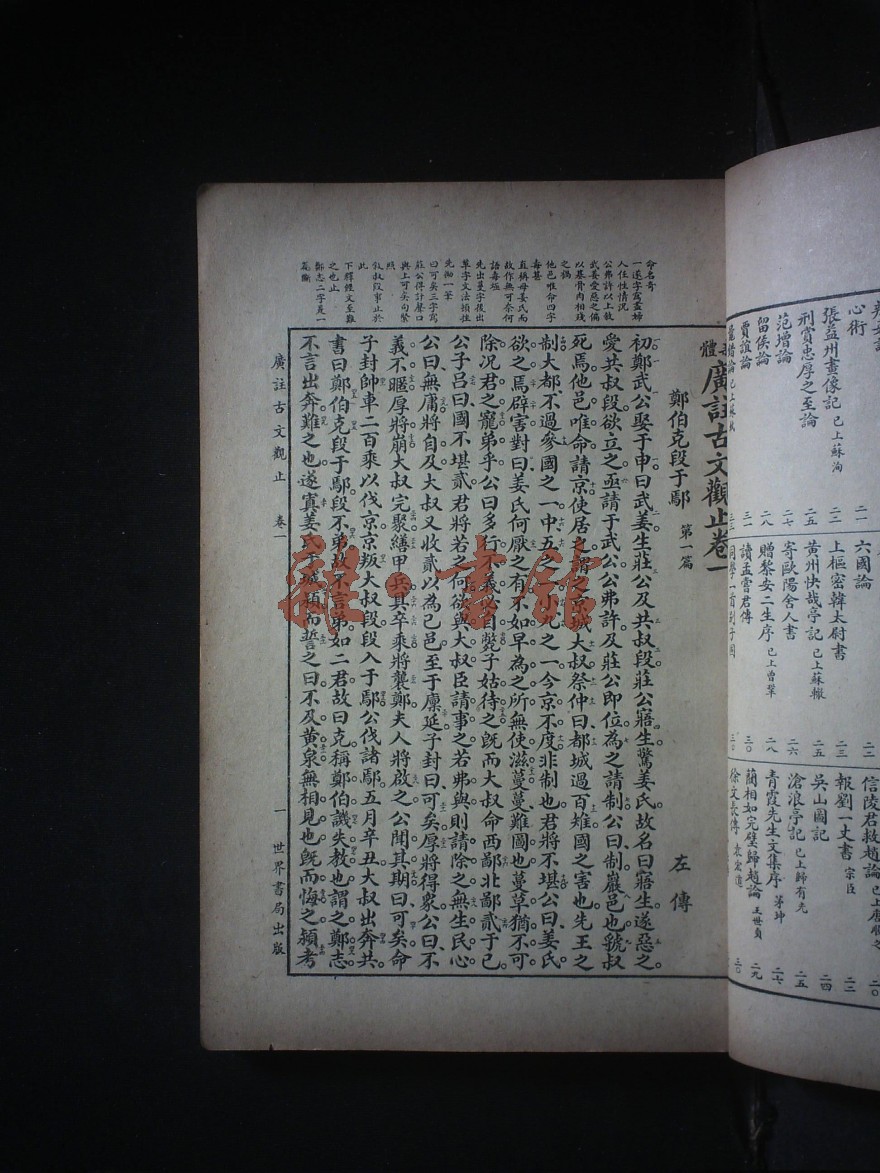 心術 二一
張益州畫像記 已上蘇洵 二二
刑賞忠厚之至論 二五
范增論 二七
留侯論 二八
賈誼論 三一
鼂錯論 已上蘇軾 三三
六國論 二二
上樞密韓太尉書 二三
黃州快哉亭記 已上蘇轍 二五
寄歐陽舍人書 二六
贈黎安二生序 已上曾鞏 二八
讀孟嘗君傳 三〇
同學一首別子固 三〇
信陵君救趙論 二〇
報劉一丈書 宗臣 二二
吳山圖記 二四
滄浪亭記 已上歸有光 二五
青霞先生文集序 茅坤 二七
藺相如完璧歸趙論 王世貞 二九
徐文長傳 袁宏道 三〇
廣註古文觀止卷一
鄭伯克段于鄢 第一篇 左傳
命名奇
一遂字寫盡婦
人任性情況
公弗許以上敘
武姜愛惡之偏
以基骨肉相殘
之禍
他邑唯命四字
毒甚
直稱母姜氏而
故作無可奈何
語毒極
先出蔓字後出
草字文法頓挫
先泐一筆
曰可矣三字寫
莊公得計聲口
與上可矣句緊
照
敘叔段事止於
此
下釋經文至難
之也止
鄭志二字是一
篇斷
初鄭武公娶于申曰武姜生莊公及共叔段莊公寤生驚姜氏故名曰寤生遂惡之
愛共叔段欲立之亟請于武公公弗許及莊公即位為之請制公曰制巖邑也虢叔
死焉他邑唯命請京使居之謂之京城大叔祭仲曰都城過百雉國之害也先王之
制大都不過參國之一中五之一小九之一今京不度非制也君將不堪公曰姜氏
欲之焉辟害對曰姜氏何厭之有不如早為之所無使滋蔓蔓難圖也蔓草猶不可
除況君之寵弟乎公曰多行不義必自斃子姑待之既而大叔命西鄙北鄙貳于己
公子呂曰國不堪貳君將若之何欲與大叔臣請事之若弗與則請除之無生民心
公曰無庸將自及大叔又收貳以為己邑至于廩延子封曰可矣厚將得眾公曰不
義不暱厚將崩大叔完聚繕甲兵具卒乘將襲鄭夫人將啟之公聞其期曰可矣命
子封帥車二百乘以伐京京叛大叔段段入于鄢公伐諸鄢五月辛丑大叔出奔共
書曰鄭伯克段于鄢段不弟故不言弟如二君故曰克稱鄭伯譏失教也謂之鄭志
不言出奔難之也遂寘姜氏于城潁而誓之曰不及黃泉無相見也既而悔之潁考
廣註古文觀止 卷一 一 世界書局出版
雜·書館